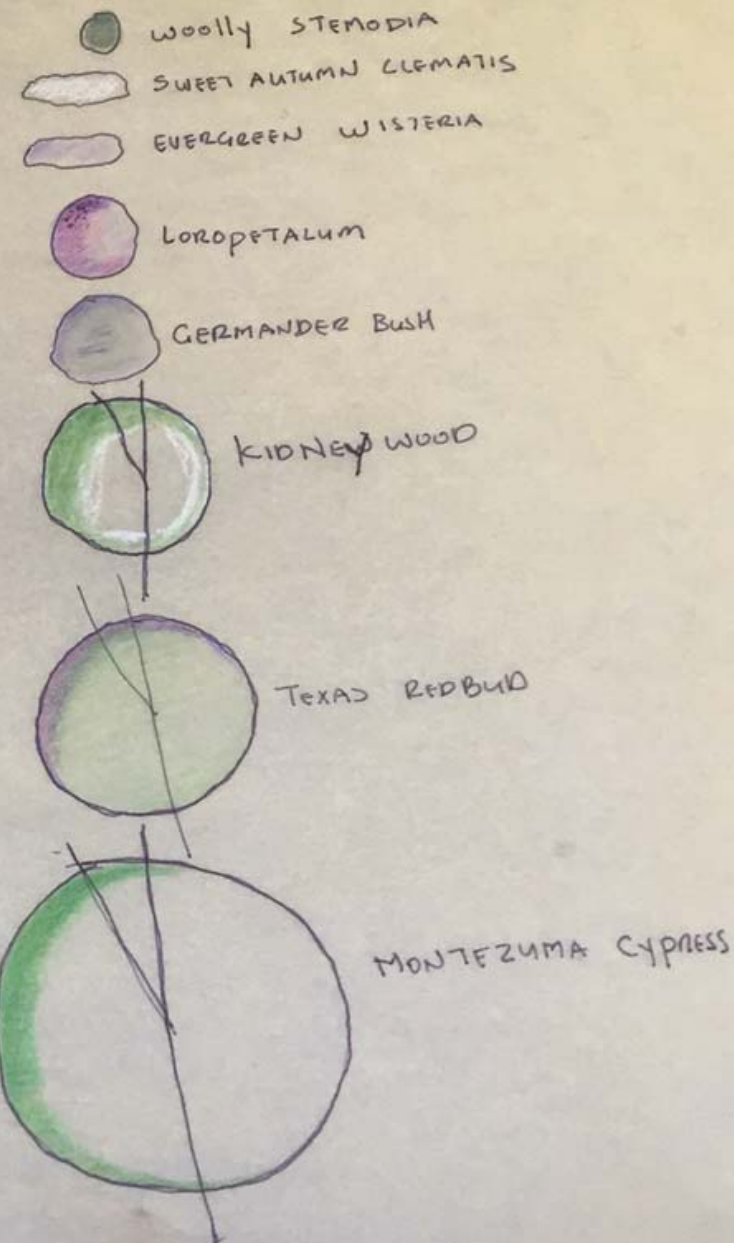 woolly STEMODIA
SWEET AUTUMN CLEMATIS
EVERGREEN WISTERIA
LOROPETALUM
GERMANDER BUSH
KIDNEY WOOD
TEXAS REDBUD
MONTEZUMA CYPRESS